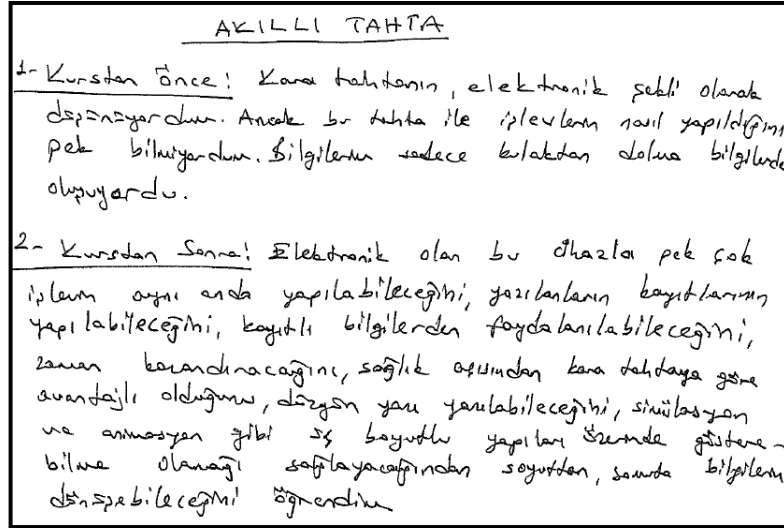 AKILLI TAHTA
1- Kurstan Önce: Kara tahtanın, elektronik şekli olarak
düşünüyordum. Ancak bu tahta ile işlevlerin nasıl yapıldığını
pek bilmiyordum. Bilgilerim sadece kulaktan dolma bilgilerden
oluşuyordu.
2- Kurstan Sonra: Elektronik olan bu cihazla pek çok
işlevin aynı anda yapılabileceğini, yazılanların kayıtlarının
yapılabileceğini, kayıtlı bilgilerden faydalanılabileceğini,
zaman kazandıracağını, sağlık açısından kara tahtaya göre
avantajlı olduğunu, düzgün yazı yazılabileceğini, simülasyon
ve animasyon gibi üç boyutlu yapıları üzerinde göstere-
bilme olanağı sağlayacağından soyuttan, somuta bilgilerin
dönüşebileceğini öğrendim